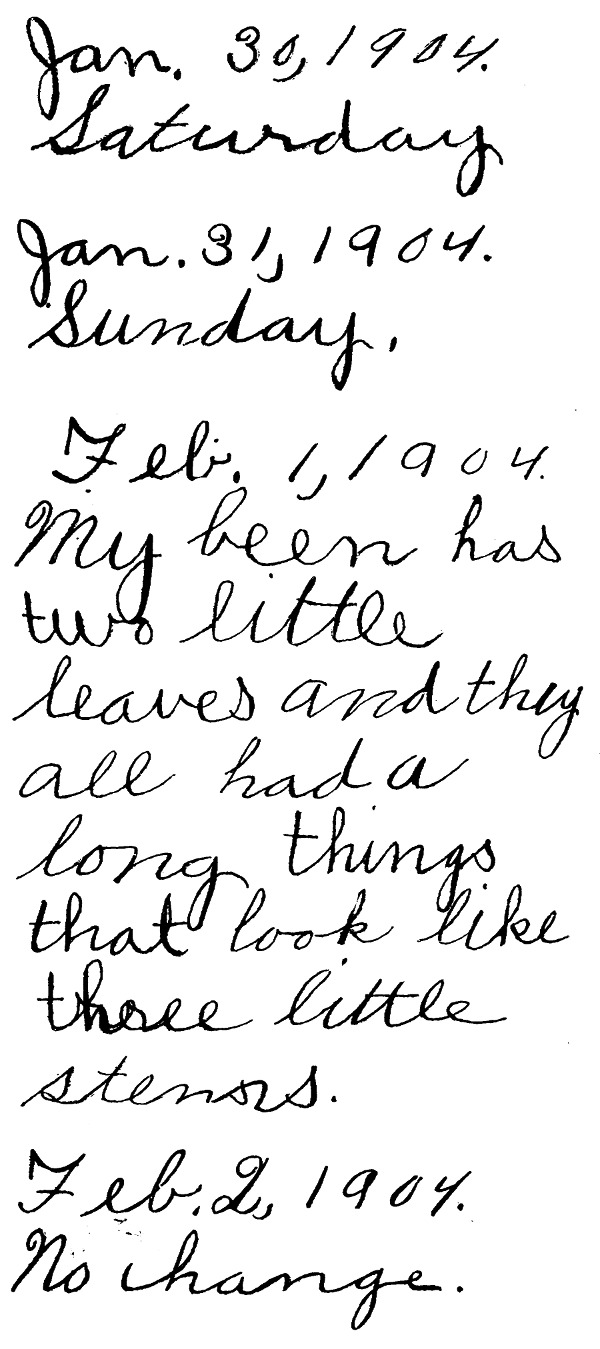 Jan. 30, 1904.
Saturday
Jan. 31, 1904.
Sunday.
Feb. 1, 1904.
My been has
two little
leaves and they
all had a
long things
that look like
three little
stenors.
Feb. 2, 1904.
No change.